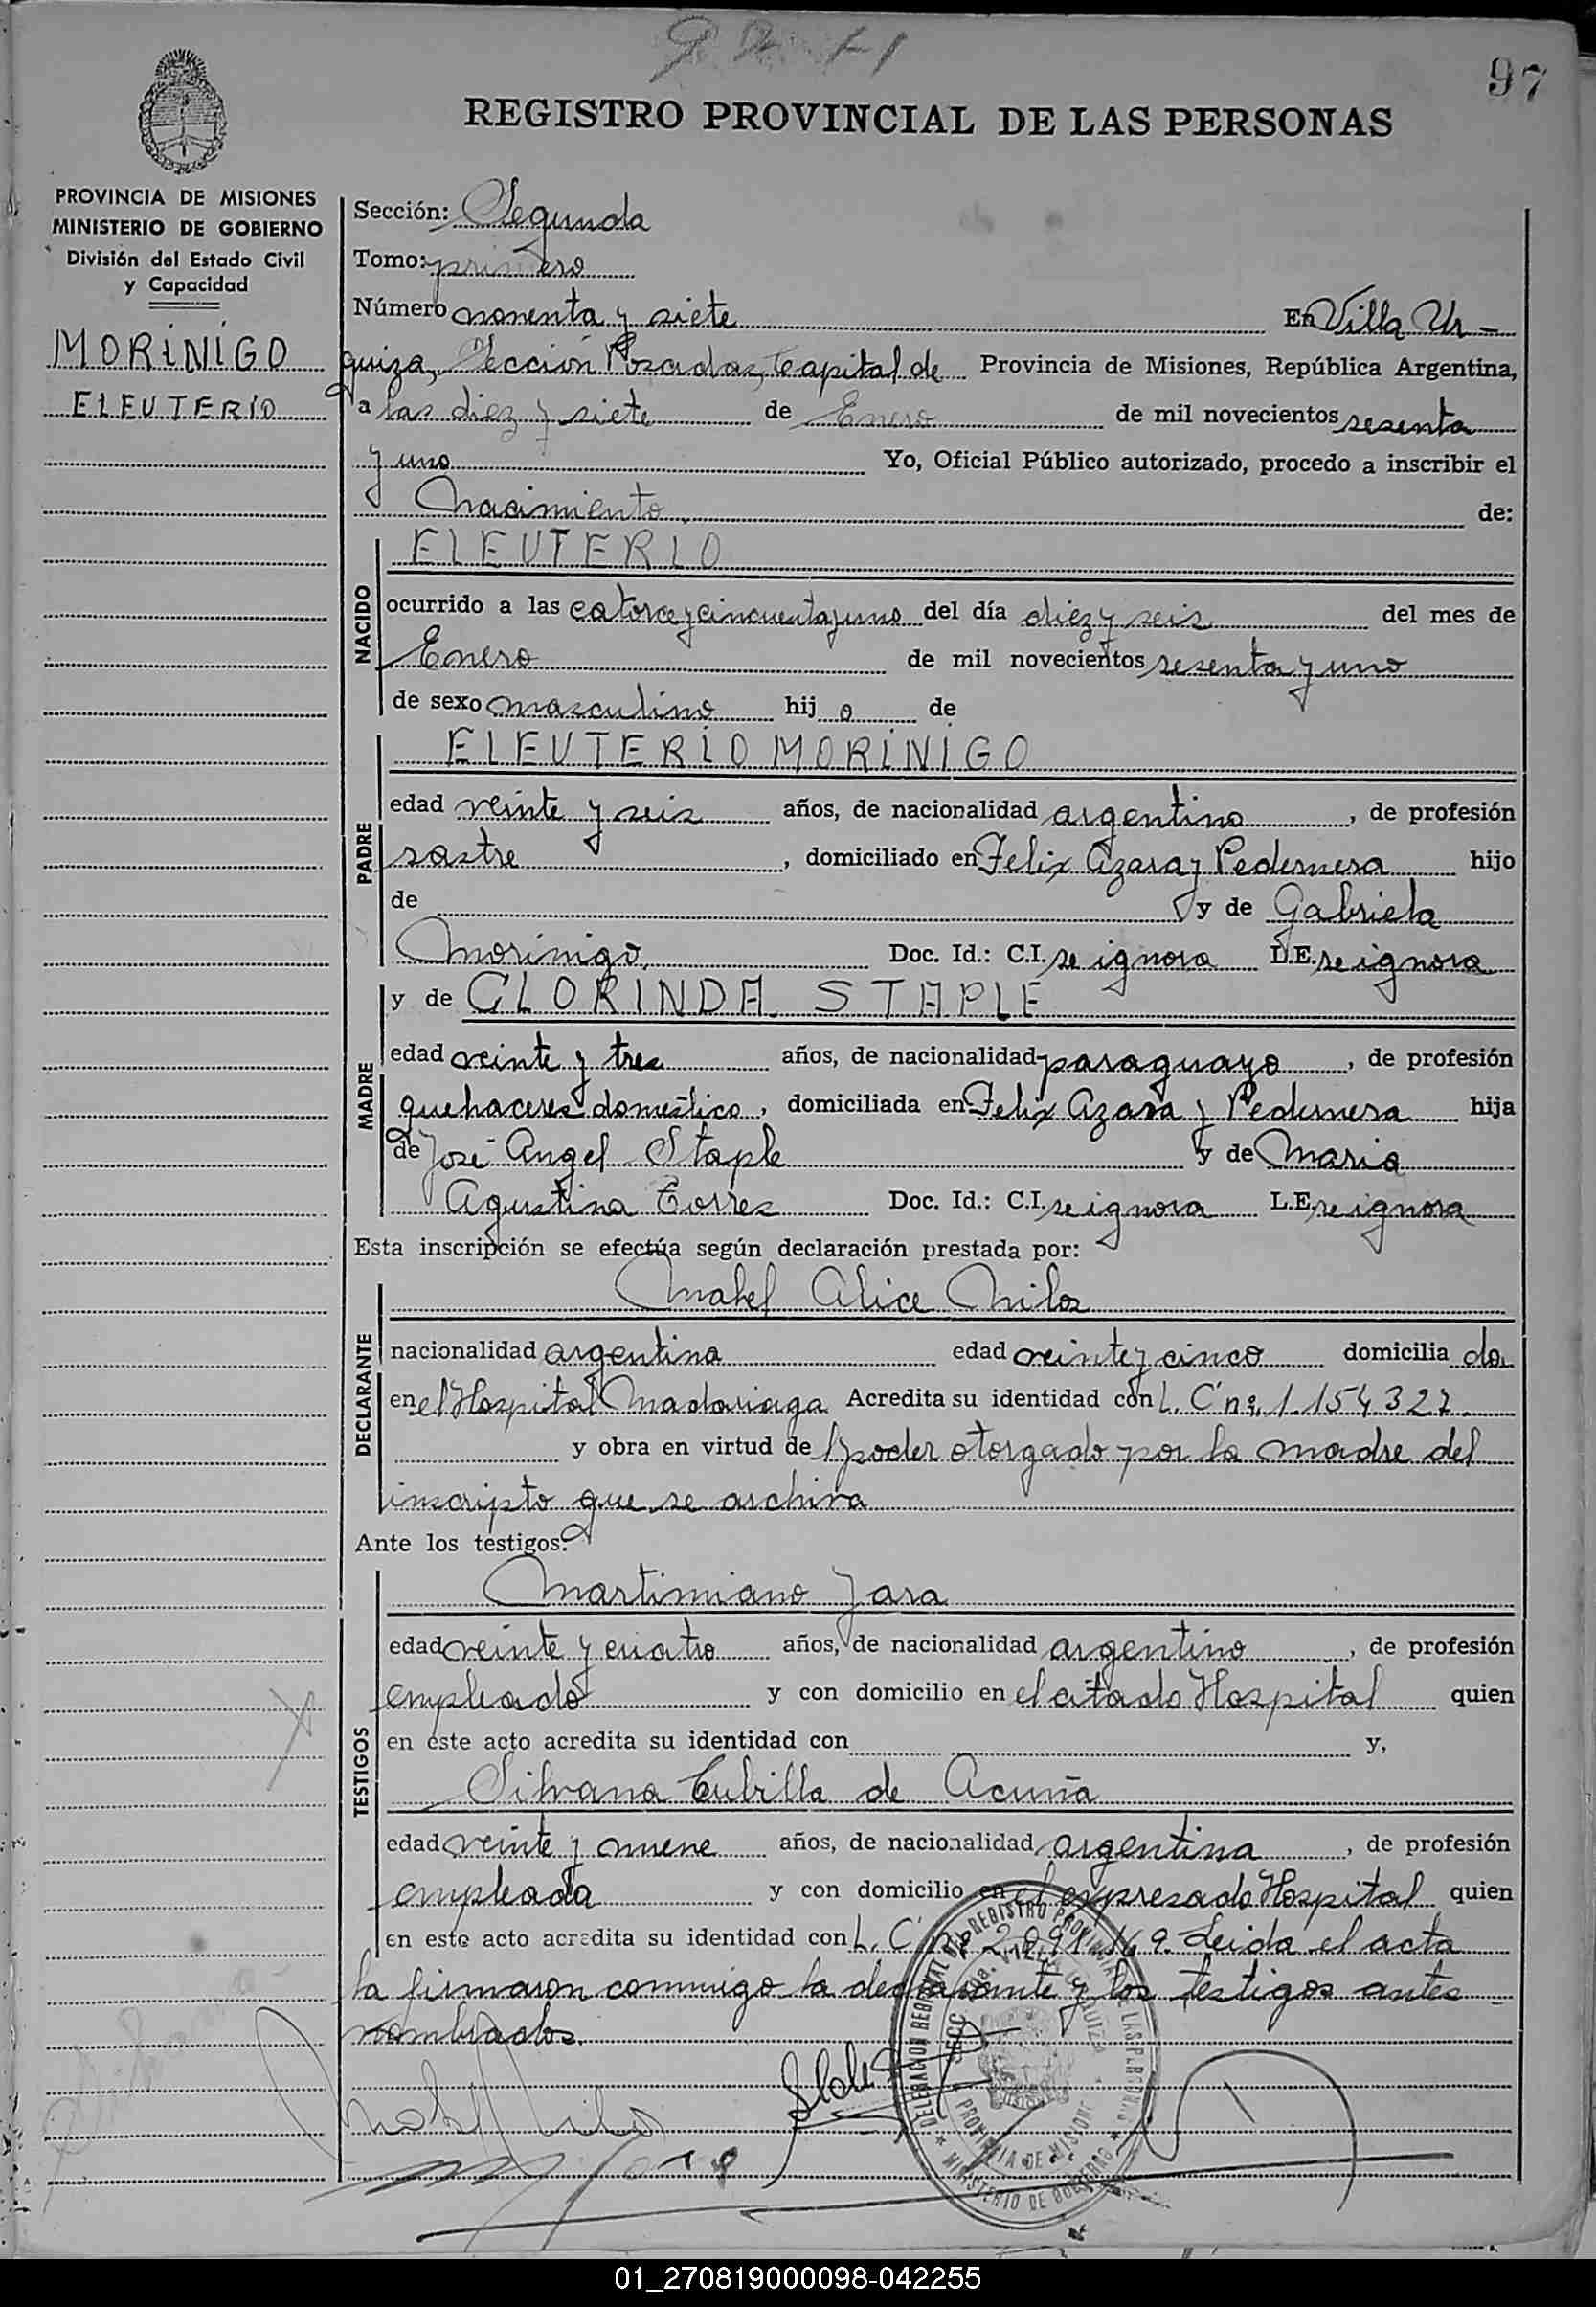 97
REGISTRO PROVINCIAL DE LAS PERSONAS
PROVINCIA DE MISIONES
MINISTERIO DE GOBIERNO
División del Estado Civil
y Capacidad
MORINIGO
ELEUTERIO
Sección: Segunda
Tomo: primero
Número noventa y siete En Villa Ur-
quiza, Sección Posadas, Capital de Provincia de Misiones, República Argentina,
a las diez y siete de Enero de mil novecientos sesenta
y uno Yo, Oficial Público autorizado, procedo a inscribir el
Nacimiento de:
NACIDO
ELEUTERIO
ocurrido a las catorce y cincuenta y uno del día diez y seis del mes de
Enero de mil novecientos sesenta y uno
de sexo masculino hij o de
PADRE
ELEUTERIO MORINIGO
edad veinte y seis años, de nacionalidad argentino, de profesión
sastre, domiciliado en Felix Azara y Pedernera hijo
de y de Gabriela
Morinigo, Doc. Id.: C.I. se ignora L.E. se ignora
MADRE
y de CLORINDA STAPLE
edad veinte y tres años, de nacionalidad paraguayo, de profesión
quehaceres domestico, domiciliada en Felix Azara y Pedernera hija
de José Angel Staple y de Maria
Agustina Torres Doc. Id.: C.I. se ignora L.E. se ignora
Esta inscripción se efectúa según declaración prestada por:
DECLARANTE
Mabel Alice Milos
nacionalidad argentina edad veinte y cinco domicilia da
en el Hospital Madariaga Acredita su identidad con L. C. nº 1.154.327
y obra en virtud de poder otorgado por la madre del
inscripto que se archiva
Ante los testigos:
TESTIGOS
Martimiano Jara
edad veinte y cuatro años, de nacionalidad argentino, de profesión
empleado y con domicilio en el citado Hospital quien
en este acto acredita su identidad con y,
Silvana Cubilla de Acuña
edad veinte y nueve años, de nacionalidad argentina, de profesión
empleada y con domicilio en el expresado Hospital quien
en este acto acredita su identidad con L. C. Leida el acta
la firmaron conmigo la declarante y los testigos antes
nombrados.
DELEGACION REGIONAL DEL REGISTRO PROVINCIAL DE LAS PERSONAS
MINISTERIO DE GOBIERNO
PROVINCIA DE MISIONES
01_270819000098-042255